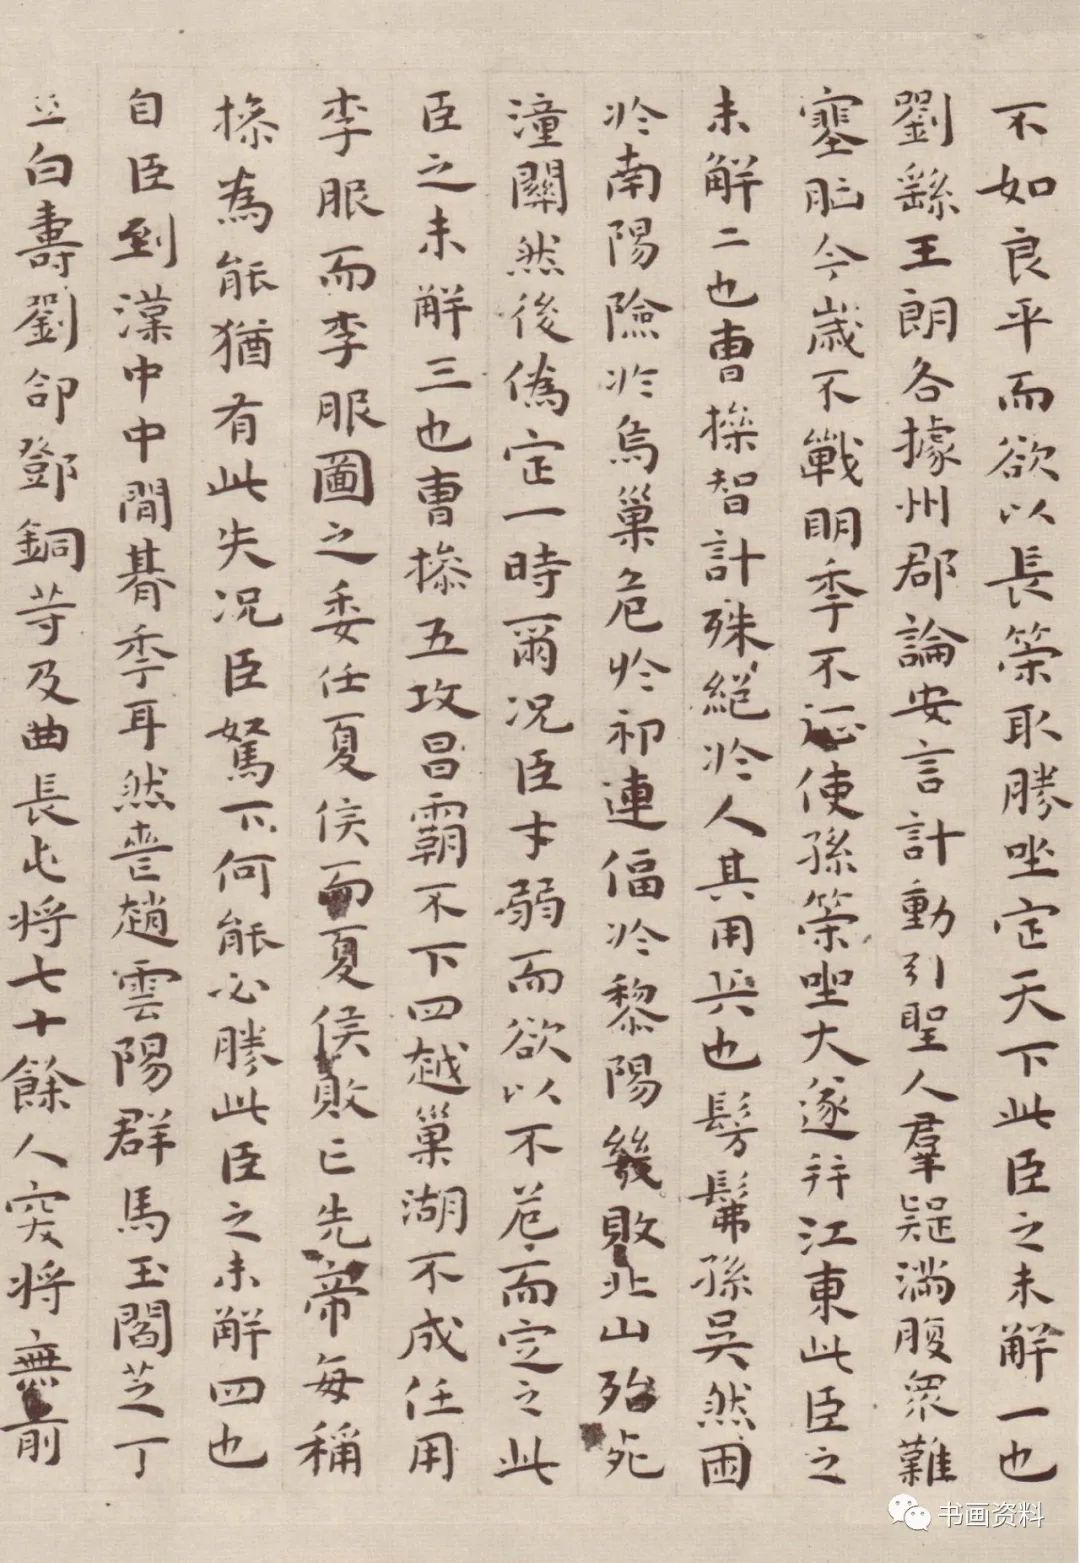 不如良平而欲以長策取勝坐定天下此臣之未解一也
劉繇王朗各據州郡論安言計動引聖人羣疑滿腹衆難
塞胸今歲不戰明季不征使孫策坐大遂并江東此臣之
未解二也曹操智計殊絕於人其用兵也髣髴孫吳然困
於南陽險於烏巢危於祁連偪於黎陽幾敗北山殆死
潼關然後僞定一時爾況臣才弱而欲以不危而定之此
臣之未解三也曹操五攻昌霸不下四越巢湖不成任用
李服而李服圖之委任夏侯而夏侯敗亡先帝每稱
操為能猶有此失況臣駑下何能必勝此臣之未解四也
自臣到漢中中間朞季耳然喪趙雲陽群馬玉閻芝丁
立白壽劉郃鄧銅等及曲長屯將七十餘人突將無前
书画资料